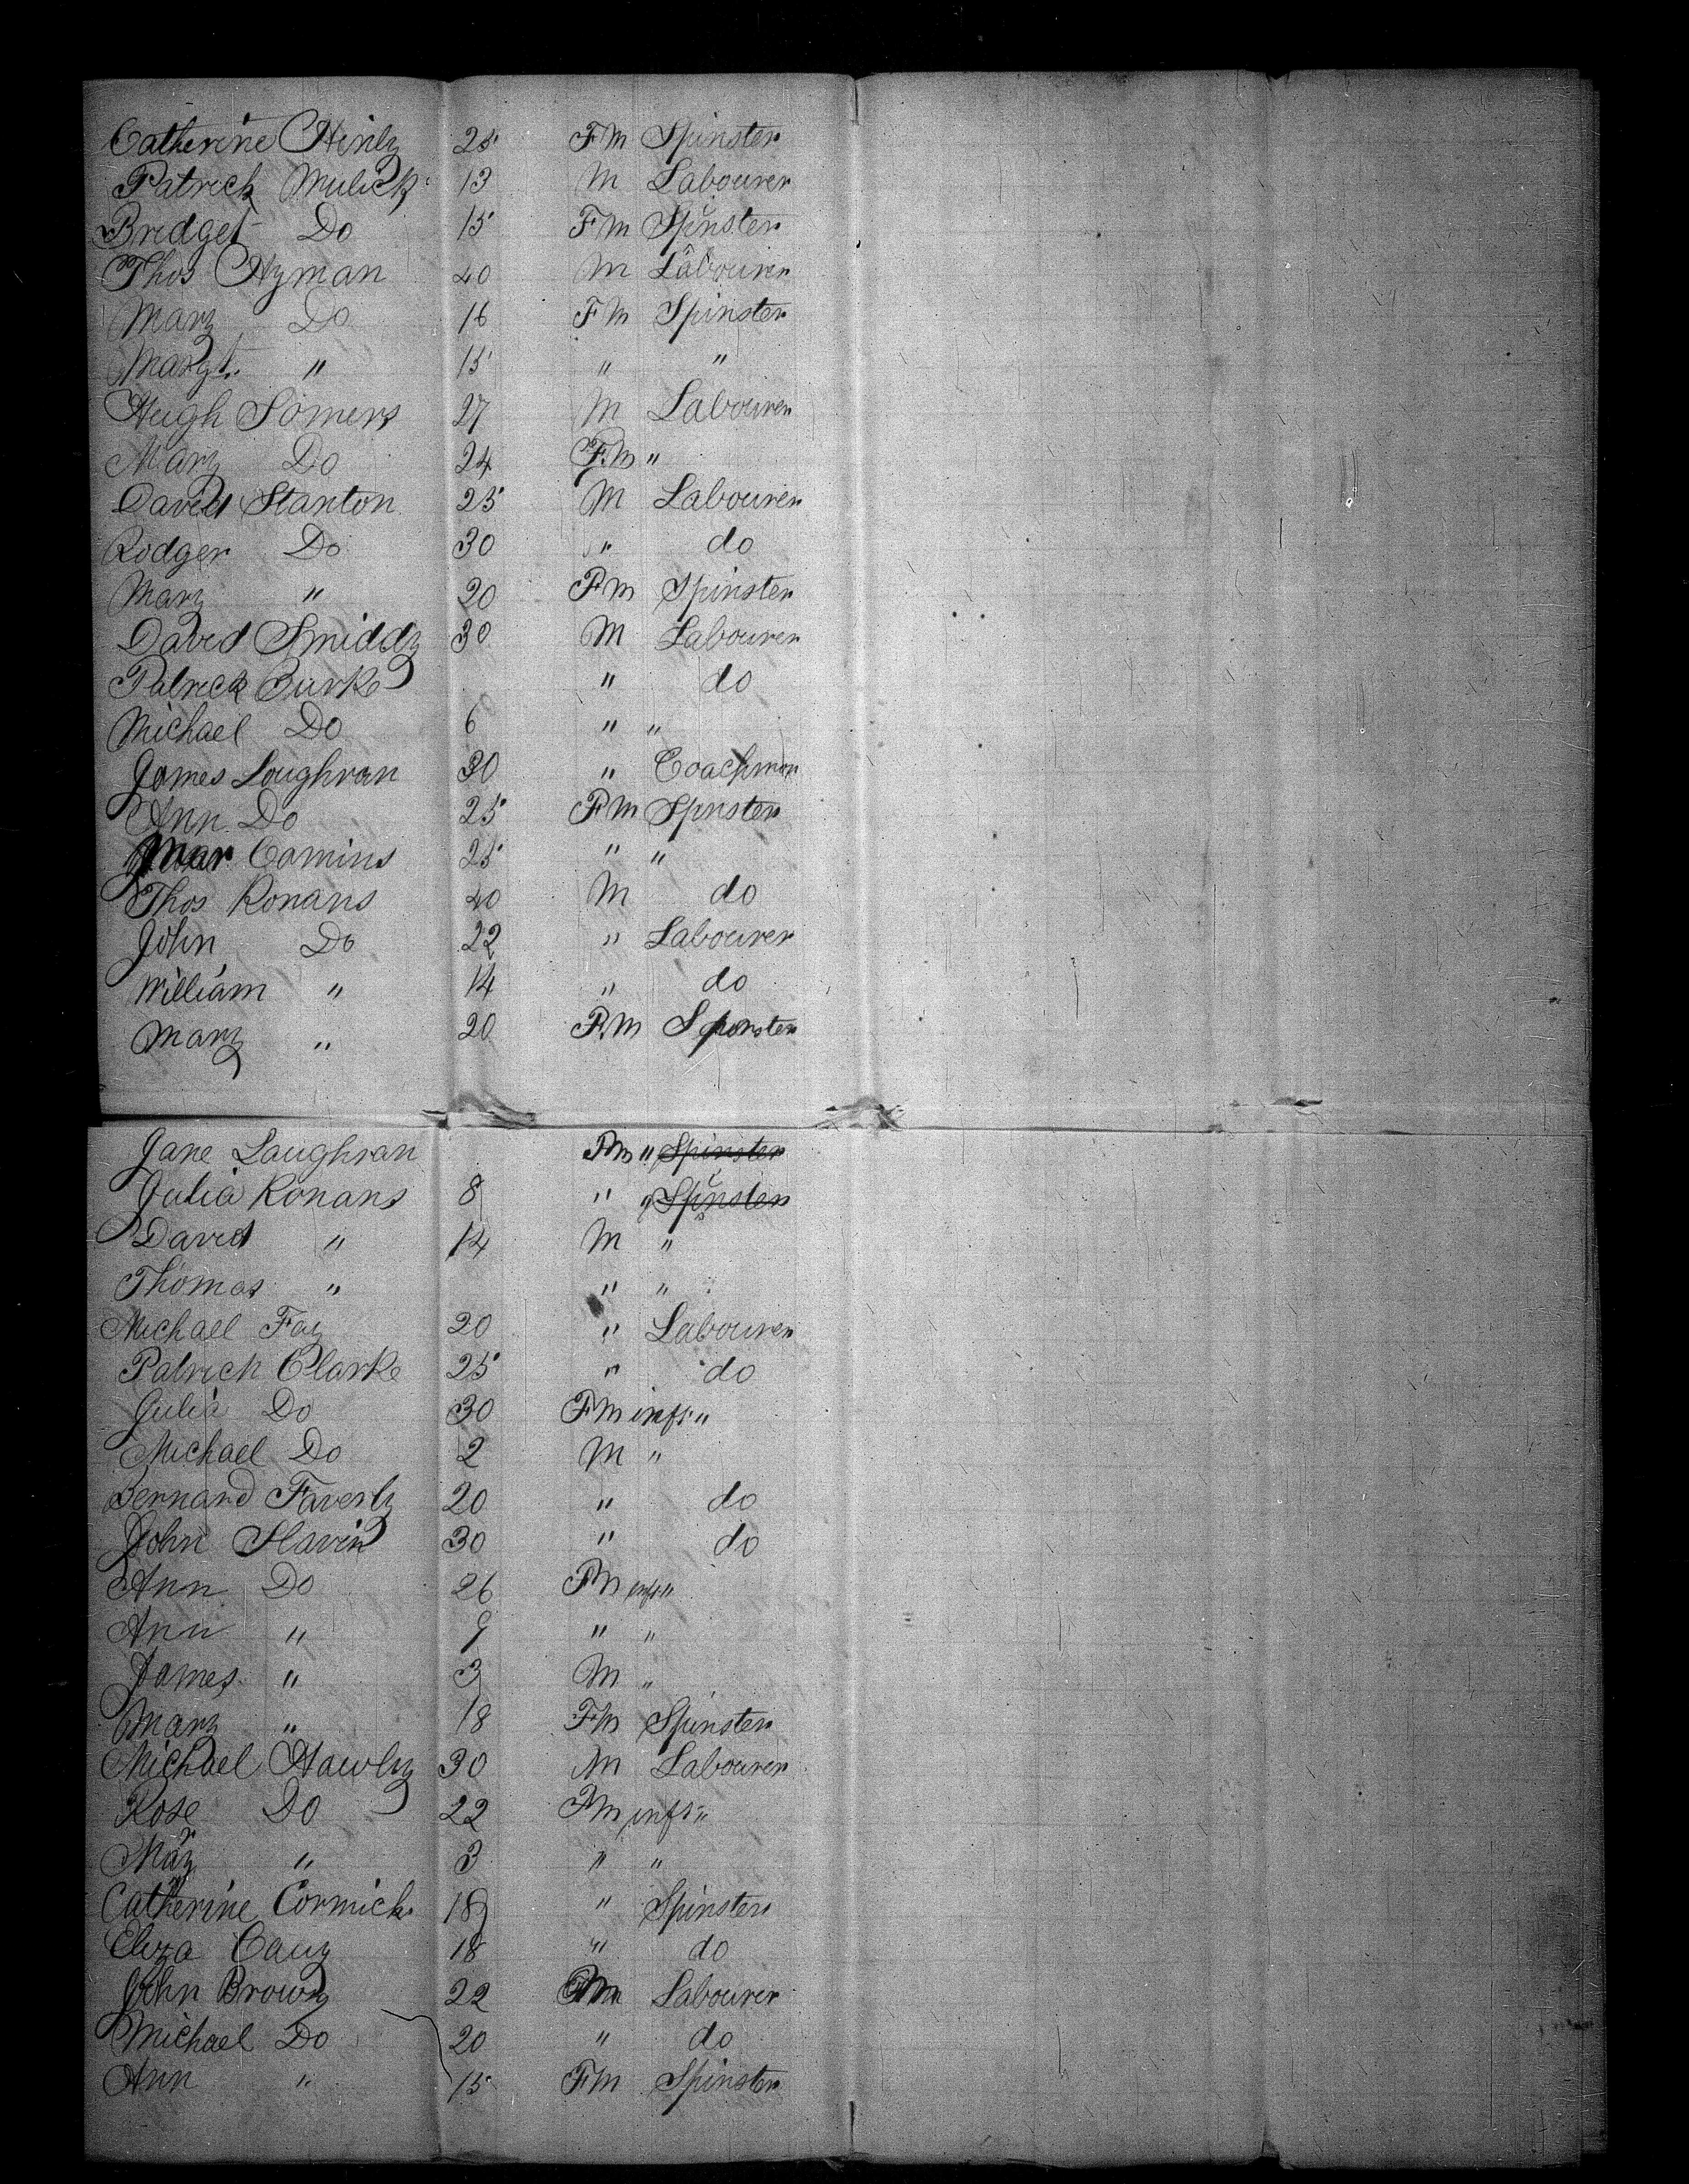 Catherine Hinly 25 Fm Spinster
Patrick Mulick 13 M Labourer
Bridget Do 15 Fm Spinster
Thos Hyman 40 M Labourer
Mary Do 16 Fm Spinster
Margt. " 15 " "
Hugh Somers 27 M Labourer
Mary Do 24 Fm "
David Stanton 25 M Labourer
Rodger Do 30 " do
Mary " 20 Fm Spinster
David Smiddy 30 M Labourer
Patrick Burke " do
Michael Do 6 " "
James Loughran 30 " Coachman
Ann Do 25 Fm Spnster
Mar Comins 25 " "
Thos Ronans 40 M do
John Do 22 " Labourer
William " 14 " do
Mary " 20 Fm Sponster
Jane Laughran Fm " Spinster
Julia Ronans 8 " " Spinster
David " 14 M "
Thomas " " "
Michael Fay 20 " Labourer
Patrich Clarke 25 " do
Julia Do 30 Fm infs "
Michael Do 2 M "
Bernard Faverly 20 " do
John Slavin 30 " do
Ann Do 26 Fm infs "
Ann " 9 " "
James " 3 M "
Mary " 18 Fm Spinster
Michael Hawly 30 M Labourer
Rose Do 22 Fm infs "
Mary " 3 " "
Catherine Cormick 18 " Spinster
Eliza Cauy 18 " do
John Brown 22 M Labourer
Michael Do 20 " do
Ann " 15 Fm Spinster